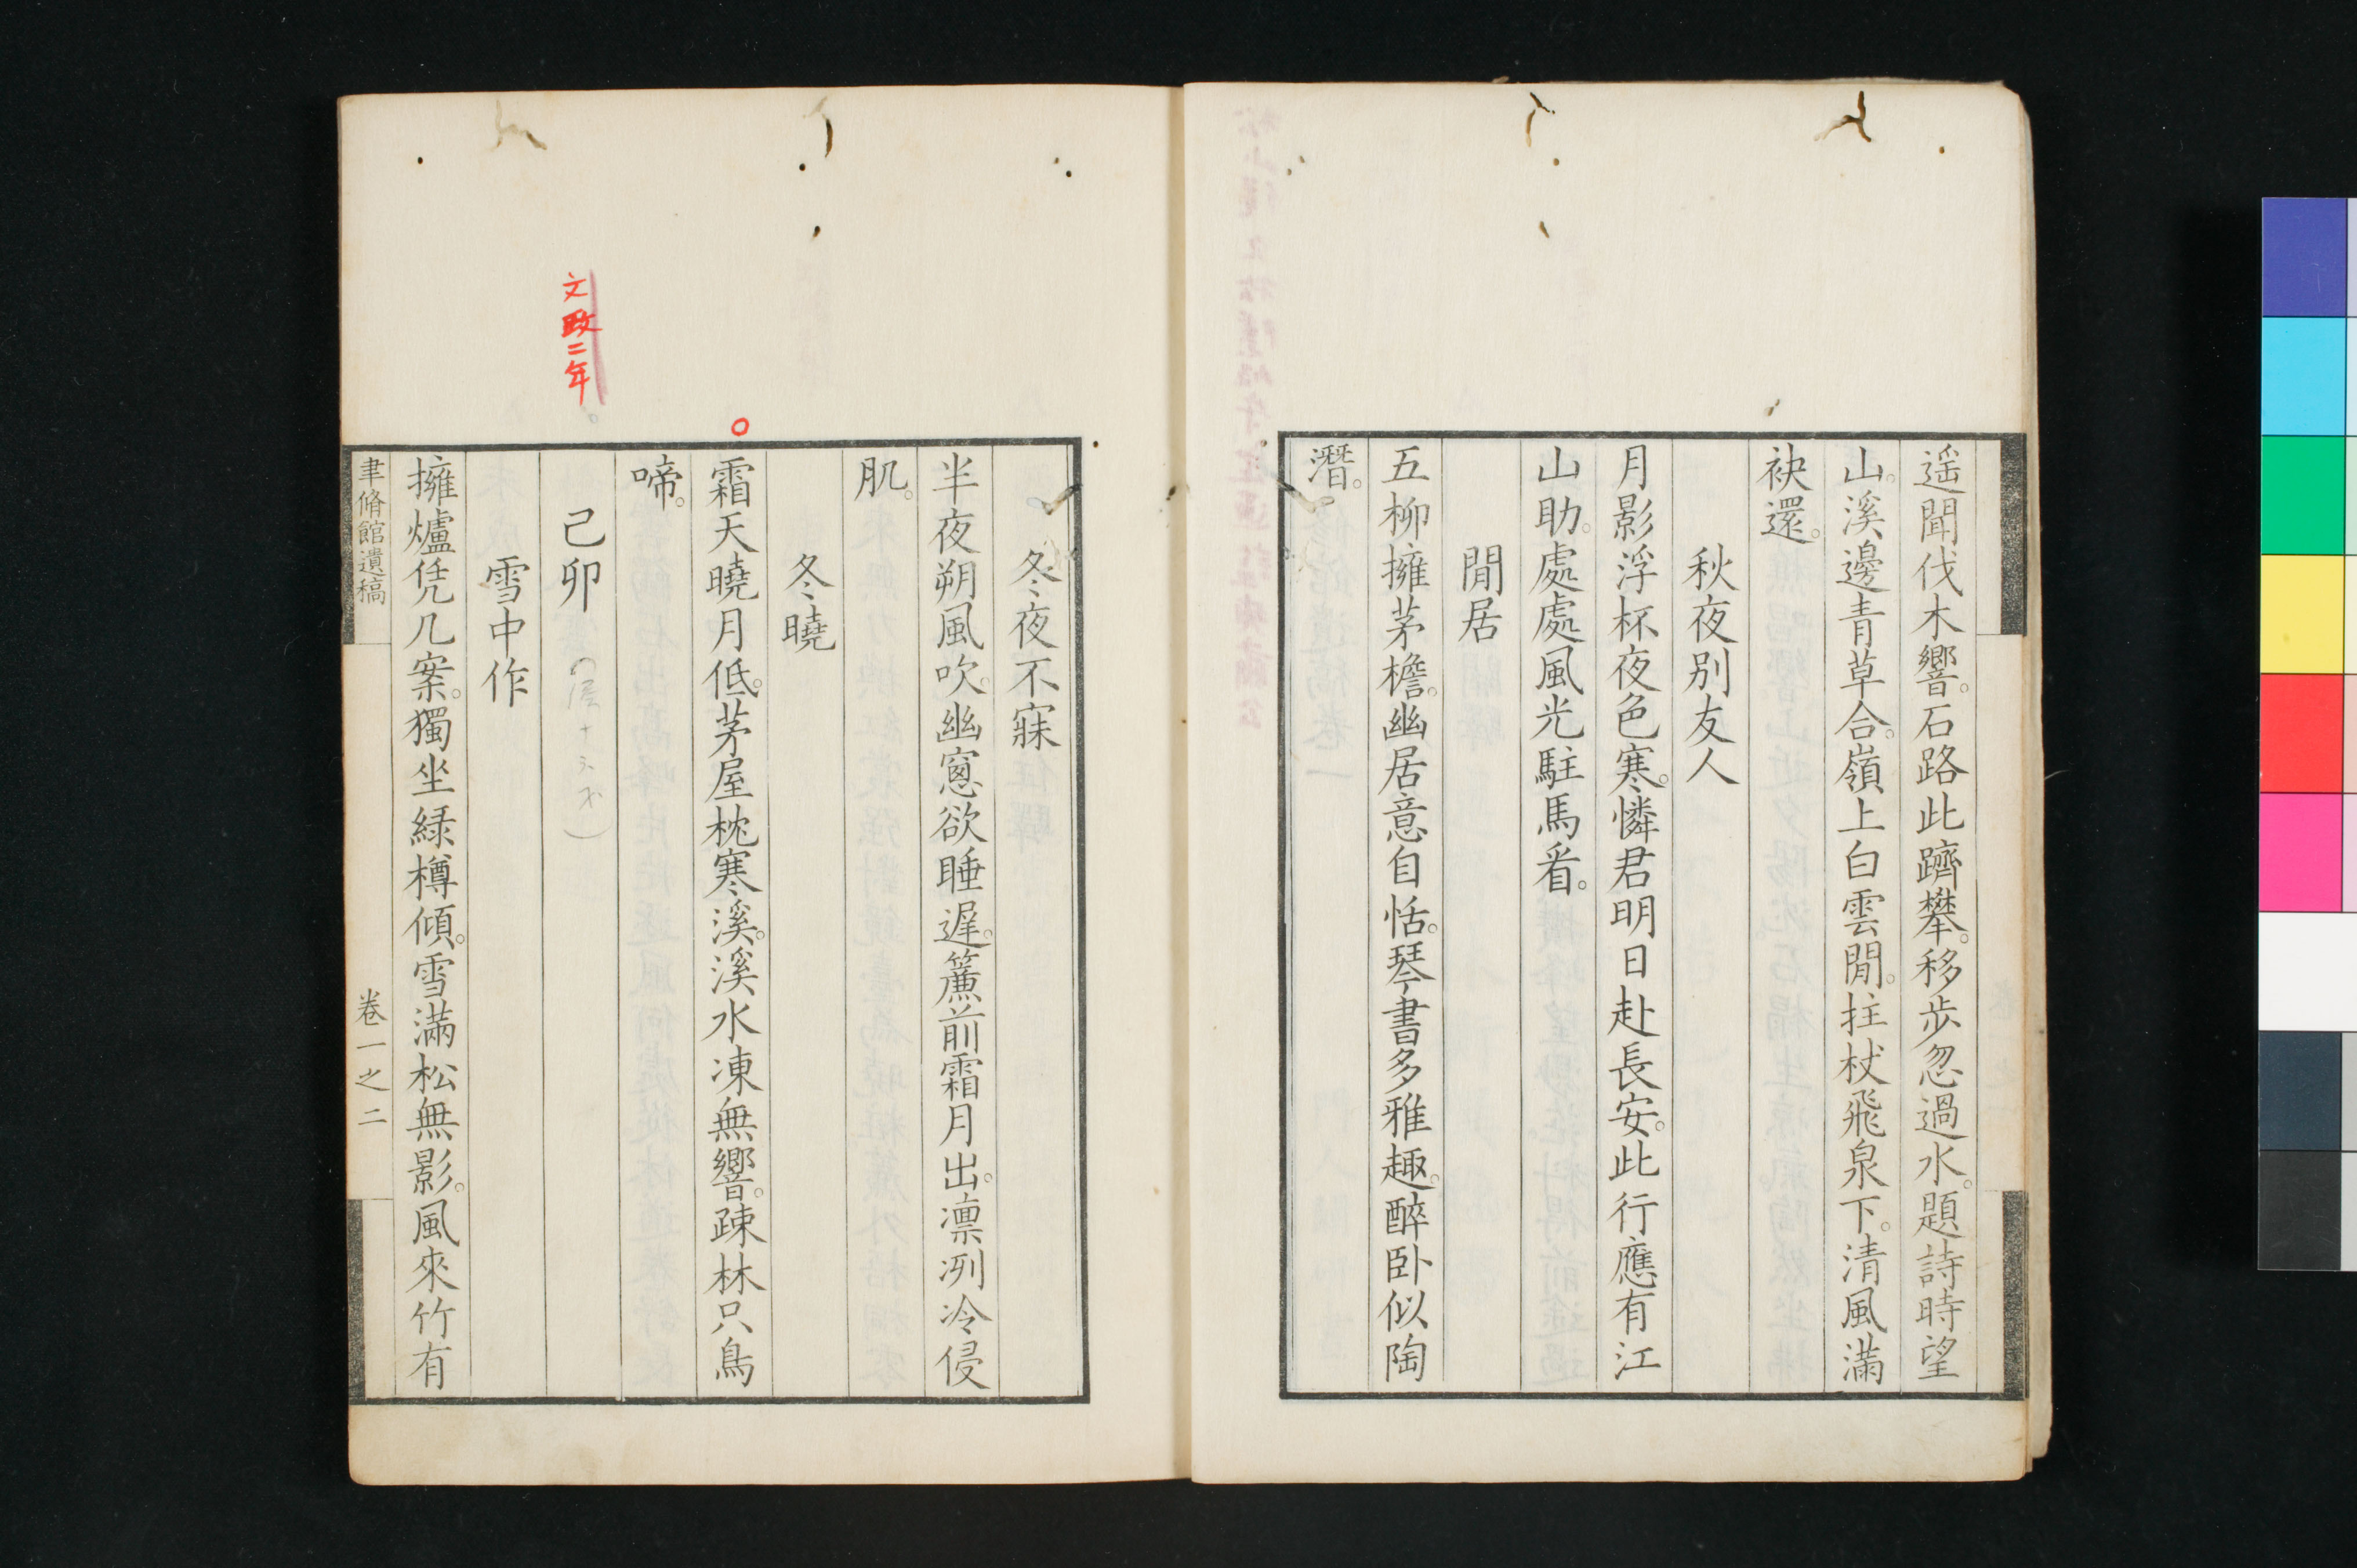 遥聞伐木響。石路此躋攀。移步忽過水。題詩時望
山。溪邊青草合。嶺上白雲閒。拄杖飛泉下。清風滿
袂還。
秋夜別友人
月影浮杯夜色寒。憐君明日赴長安。此行應有江
山助。處處風光駐馬看。
閒居
五柳擁茅檐。幽居意自恬。琴書多雅趣。醉卧似陶
潛。
冬夜不寐
半夜朔風吹。幽窻欲睡遲。簾前霜月出。凛冽冷侵
肌。
冬曉
霜天曉月低。茅屋枕寒溪。溪水凍無響。疎林只鳥
啼。
文政二年
己卯
雪中作
擁爐凭几案。獨坐綠樽傾。雪滿松無影。風來竹有
聿脩館遺稿 卷一之二